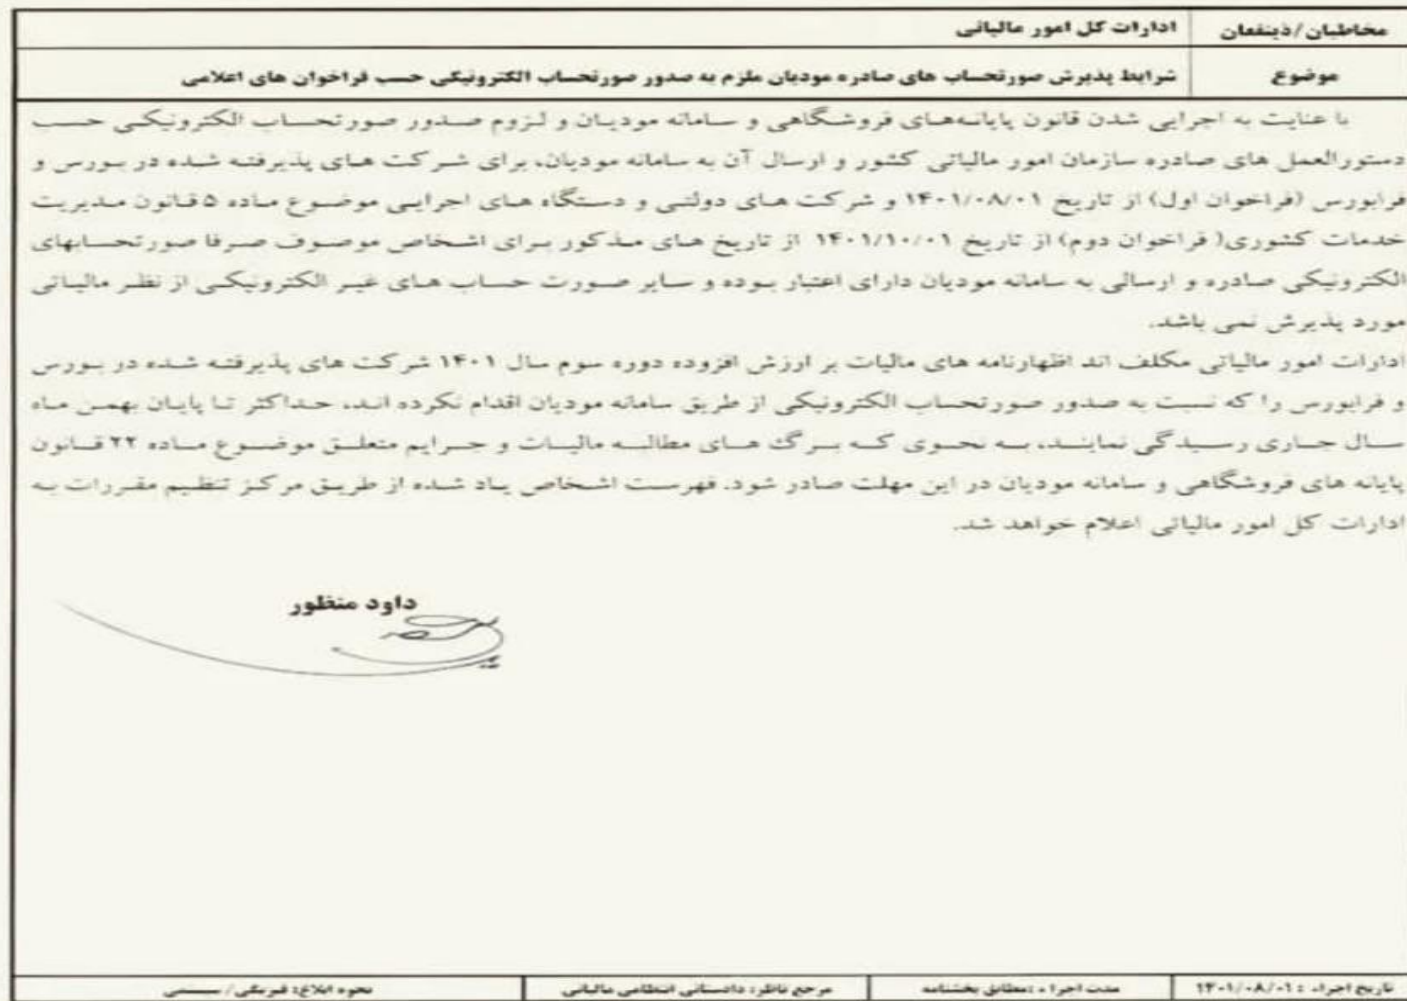 مخاطبان/ذینفعان ادارات کل امور مالیاتی
موضوع شرایط پذیرش صورتحساب های صادره مودیان ملزم به صدور صورتحساب الکترونیکی حسب فراخوان های اعلامی
با عنایت به اجرایی شدن قانون پایانه‌های فروشگاهی و سامانه مودیان و لزوم صدور صورتحساب الکترونیکی حسب
دستورالعمل های صادره سازمان امور مالیاتی کشور و ارسال آن به سامانه مودیان، برای شرکت های پذیرفته شده در بورس و
فرابورس (فراخوان اول) از تاریخ ۱۴۰۱/۰۸/۰۱ و شرکت های دولتی و دستگاه های اجرایی موضوع ماده ۵ قانون مدیریت
خدمات کشوری( فراخوان دوم) از تاریخ ۱۴۰۱/۱۰/۰۱ از تاریخ های مذکور برای اشخاص موصوف صرفا صورتحسابهای
الکترونیکی صادره و ارسالی به سامانه مودیان دارای اعتبار بوده و سایر صورت حساب های غیر الکترونیکی از نظر مالیاتی
مورد پذیرش نمی باشد.
ادارات امور مالیاتی مکلف اند اظهارنامه های مالیات بر ارزش افزوده دوره سوم سال ۱۴۰۱ شرکت های پذیرفته شده در بورس
و فرابورس را که نسبت به صدور صورتحساب الکترونیکی از طریق سامانه مودیان اقدام نکرده اند، حداکثر تا پایان بهمن ماه
سال جاری رسیدگی نمایند، به نحوی که برگ های مطالبه مالیات و جرایم متعلق موضوع ماده ۲۲ قانون
پایانه های فروشگاهی و سامانه مودیان در این مهلت صادر شود. فهرست اشخاص یاد شده از طریق مرکز تنظیم مقررات به
ادارات کل امور مالیاتی اعلام خواهد شد.
داود منظور
تاریخ اجراء : ۱۴۰۱/۰۸/۰۱ مدت اجراء : مطابق بخشنامه مرجع ناظر: دادستانی انتظامی مالیاتی نحوه ابلاغ: فیزیکی/ سیستمی